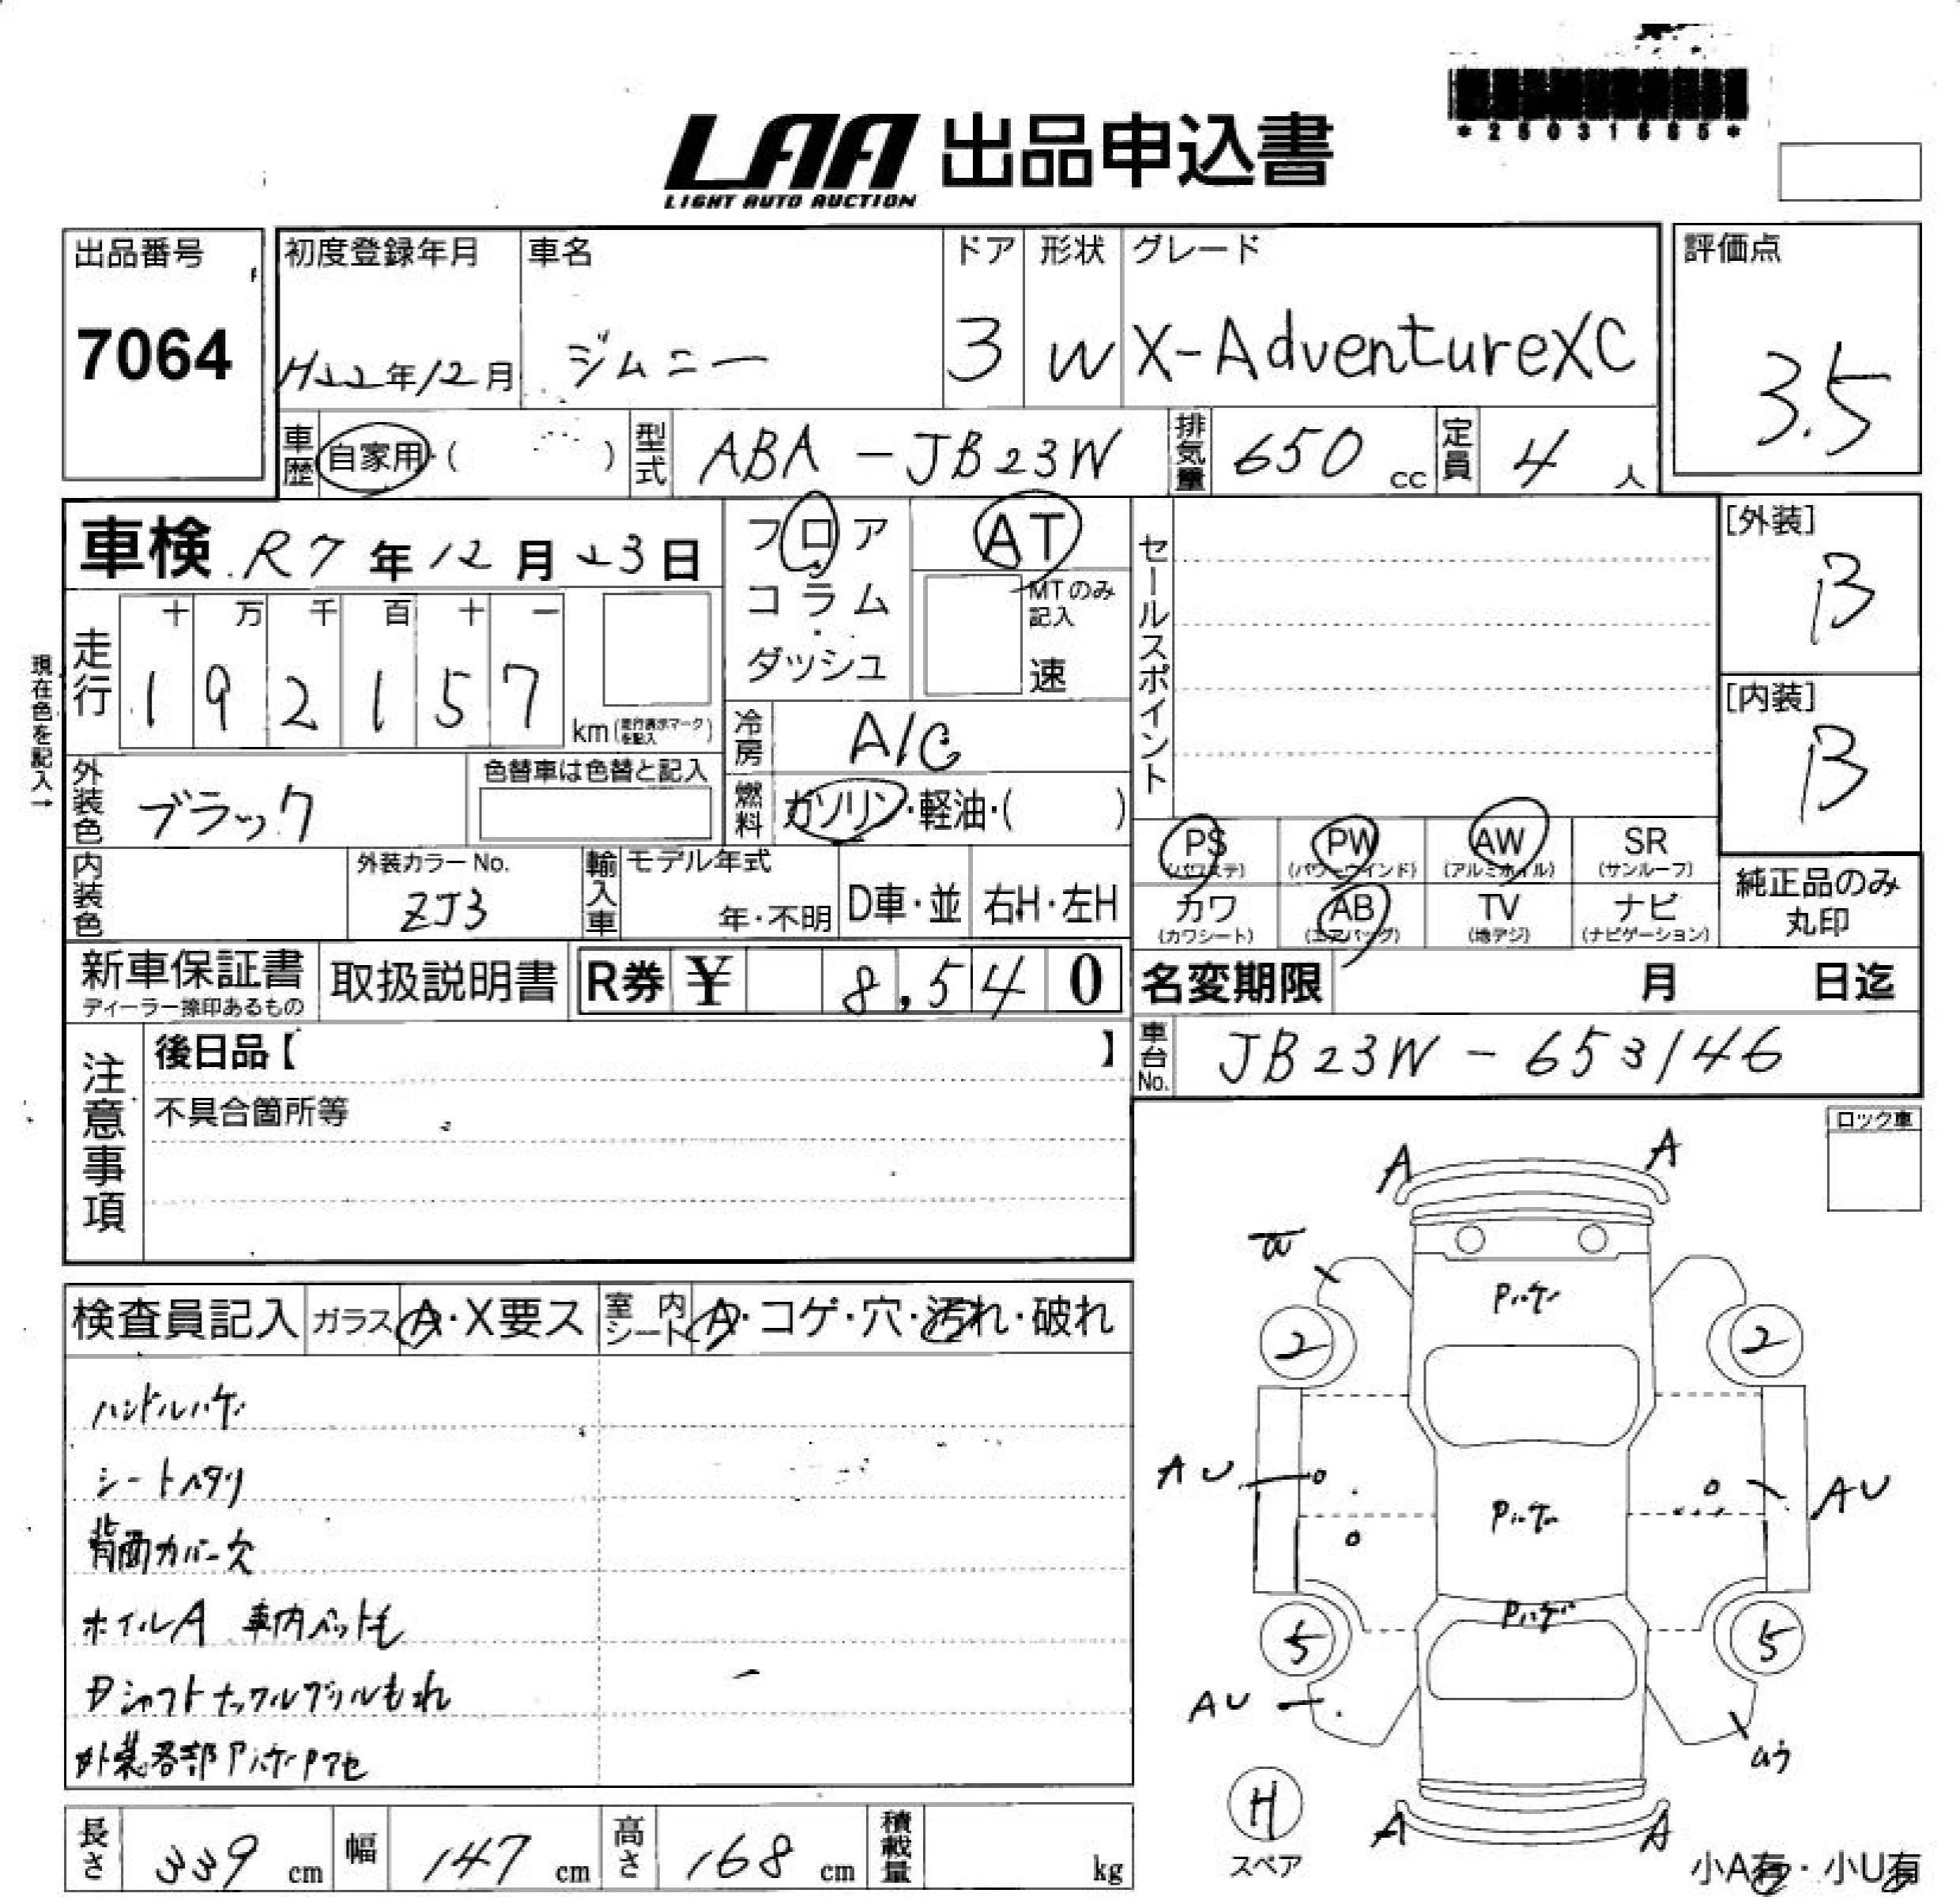 *25031665*
LAA 出品申込書
LIGHT AUTO AUCTION
出品番号
7064
初度登録年月
H22年12月
車名
ジムニー
ドア
3
形状
W
グレード
X-AdventureXC
評価点
3.5
車歴
自家用・( )
型式
ABA-JB23W
排気量
650 cc
定員
4人
車検 R7年12月23日
フロア
コラム
ダッシュ
AT
MTのみ
記入
速
セールスポイント
[外装]
B
[内装]
B
現在色を記入→
走行
十 万 千 百 十 一
1 9 2 1 5 7
km(走行表示マークを記入)
冷房
A/C
燃料
ガソリン・軽油・( )
外装色
ブラック
色替車は色替と記入
内装色
外装カラーNo.
ZJ3
輸入車
モデル年式
年・不明
D車・並
右H・左H
PS
(パワステ)
PW
(パワーウインド)
AW
(アルミホイル)
SR
(サンルーフ)
カワ
(カワシート)
AB
(エアバッグ)
TV
(地デジ)
ナビ
(ナビゲーション)
純正品のみ
丸印
新車保証書
ディーラー捺印あるもの
取扱説明書
R券 ¥ 8,540
名変期限 月 日迄
車台No.
JB23W-653146
注意事項
後日品【 】
不具合箇所等
ロック車
検査員記入
ガラス A・X要ス
室内シート A・コゲ・穴・汚れ・破れ
ハンドルハゲ
シートヘタリ
背面カバー欠
ホイルA 車内ペット毛
Pシャフトナックルグリルもれ
外装各部Pハゲ・Pアセ
A
A
W
Pハゲ
2
2
AU
Pハゲ
AU
Pハゲ
5
5
AU
A
A
H
スペア
小A有・小U有
長さ
339 cm
幅
147 cm
高さ
168 cm
積載量
kg